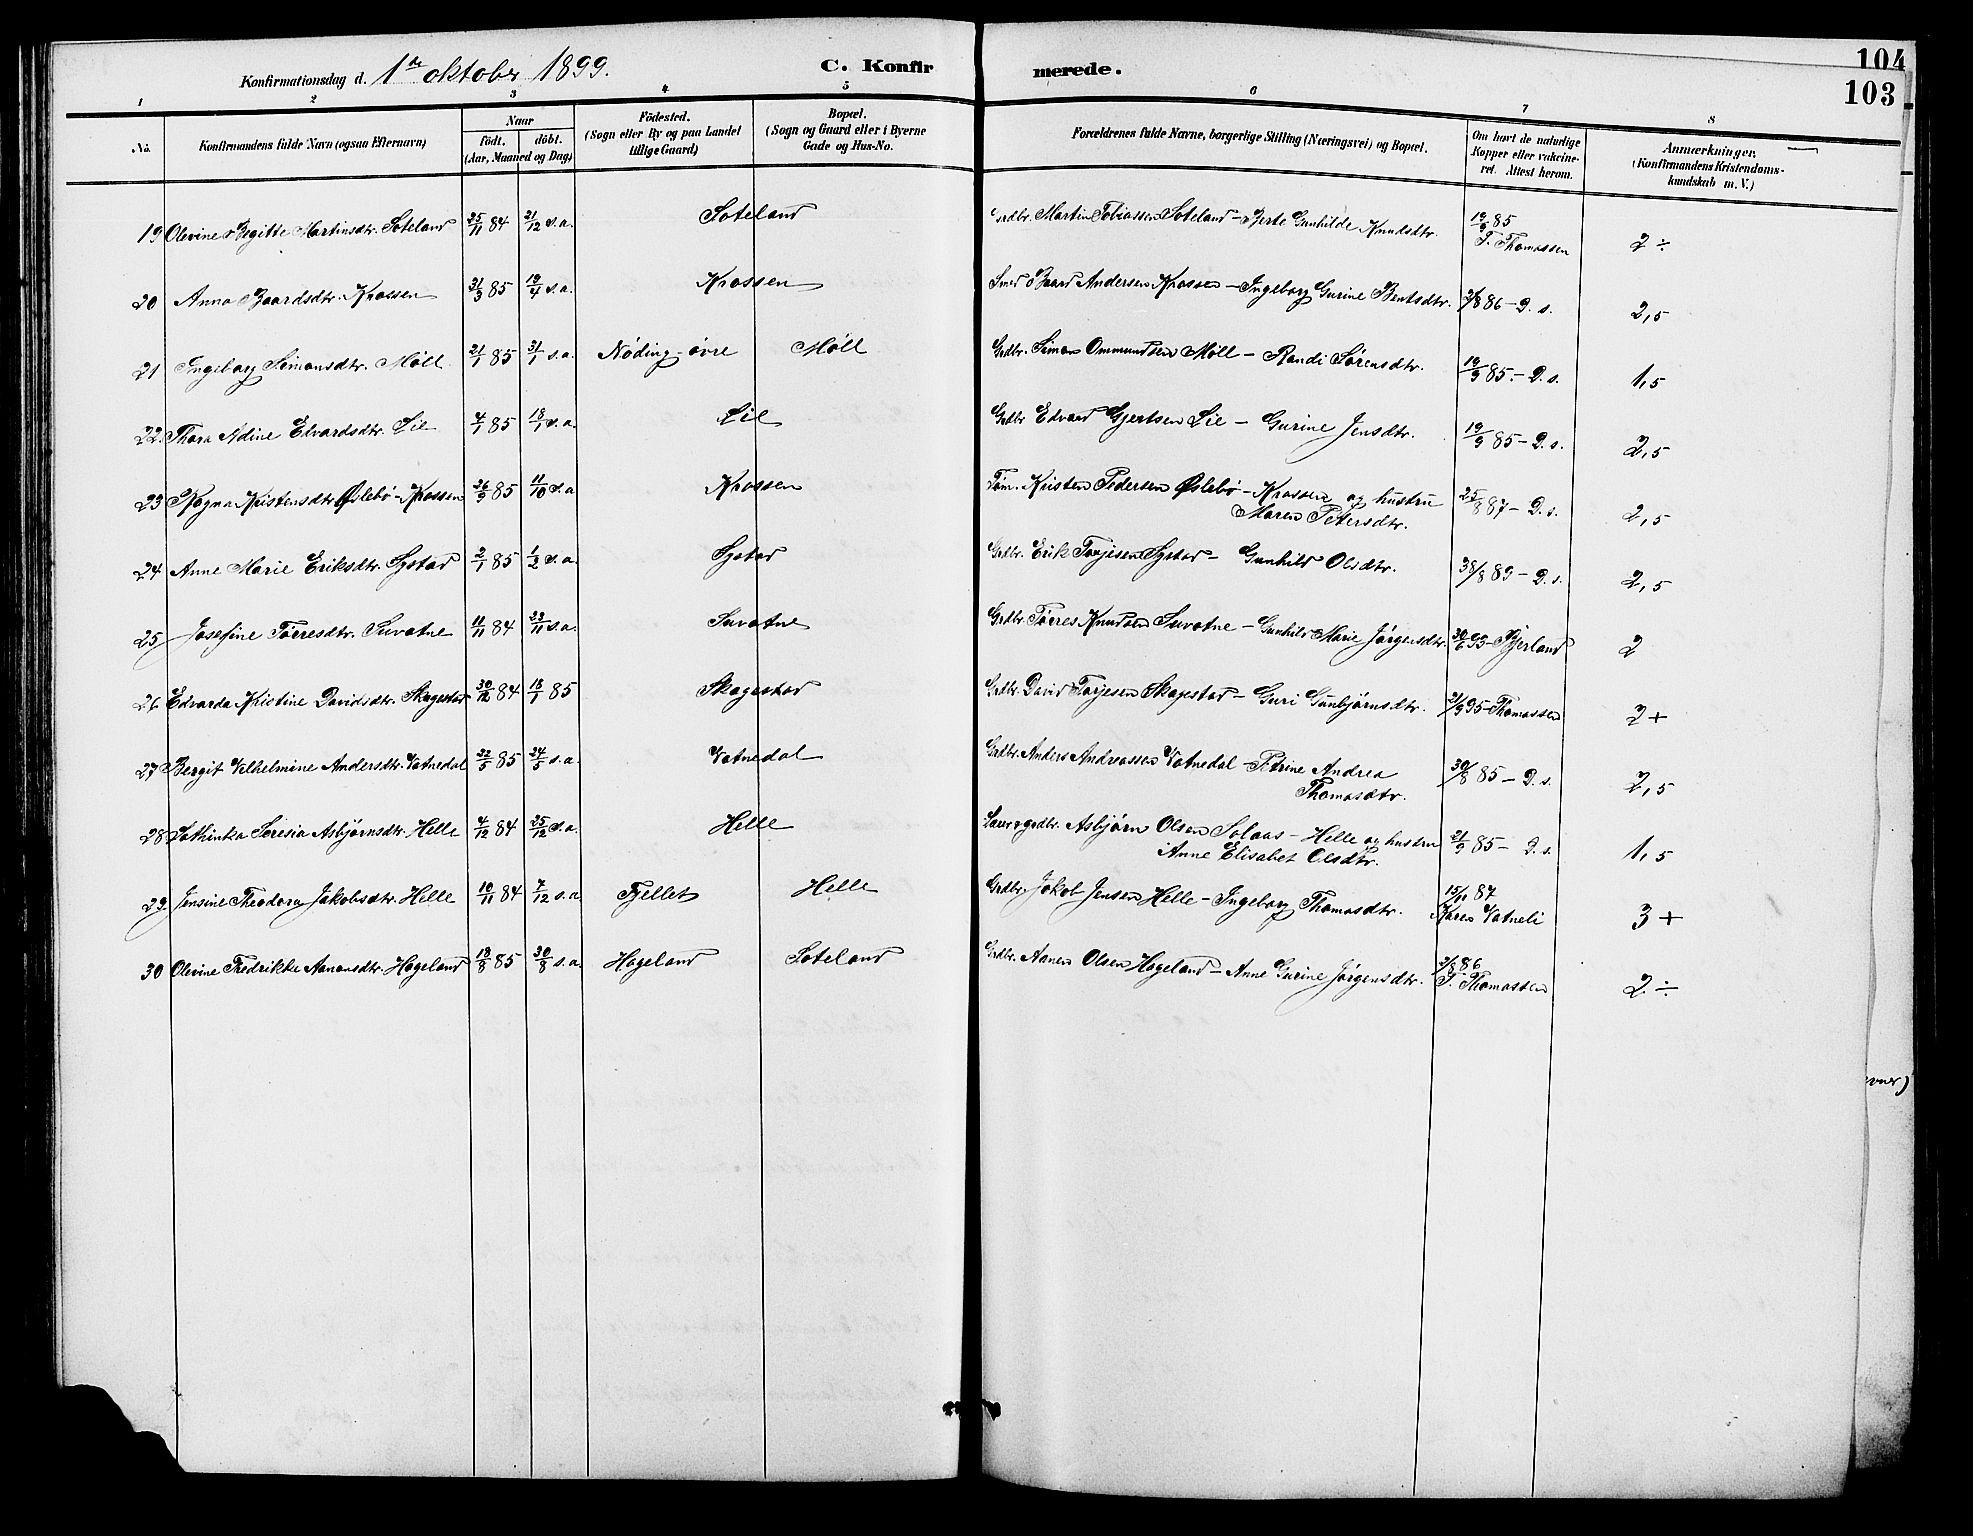 104
103
Konfirmationsdag d. 1ste oktober 1899. C. Konfirmerede.
1 2 3 4 5 6 7 8
No. Konfirmandens fulde Navn (ogsaa Efternavn) Naar födt. döbt. (Aar, Maaned og Dag) Födested. (Sogn eller By og paa Landet tillige Gaard) Bopæl. (Sogn og Gaard eller i Byerne Gade og Hus-No. Forældrenes fulde Navne, borgerlige Stilling (Næringsvei) og Bopæl. Om havt de naturlige Kopper eller vakcineret. Attest herom. Anmærkninger. (Konfirmandens Kristendomskundskab m. V.)
19 Olevine Begitte Martinsdtr. Soteland 25/11 84 21/12 s.a. Soteland Grdbr. Martin Tobiassen Soteland - Berte Gunhilde Knudsdtr. 19/9 85 T. Thomassen 2 ÷
20 Anna Baardsdtr. Krossen 21/3 85 19/4 s.a. Krossen Smed Baard Andersen Krossen - Ingeborg Gurine Bentsdtr. 2/8 86 - D. s. 2,5
21 Ingeborg Simonsdtr. Möll 21/1 85 31/1 s.a. Nöding - övre Möll Grdbr. Simon Ommundsen Möll - Randi Sörensdtr. 19/9 85. - D. s. 1,5
22. Thora Adine Edvardsdtr. Lie 4/1 85 18/1 s.a. Lie Grdbr Edvard Gjertsen Lie - Gurine Jensdtr. 19/9 85 - D. s. 2,5
23 Ragna Kristensdtr Öslebö - Krossen 26/9 85 11/10 s.a Krossen Töm. Kristen Pedersen Öslebö - Krossen og hustru Maren Petersdtr. 25/8 87 - D. s. 2,5
24 Anne Marie Eriksdtr. Systad 2/1 85 1/2 s.a. Systad Grdbr. Erik Torjesen Systad - Gunhild Olsdtr. 8 89 - D. s. 2,5
25 Josefine Törresdtr. Suvatne 11/11 84 23/11 s.a. Suvatne Grdbr. Törres Knudsen Suvatne - Gunhild Marie Jörgensdtr. 30/6 93 - Bjerland 2
26 Edvarda Kristine Davidsdtr. Skagestad 30/12 84 18/1 85 Skagestad Grdbr. David Torjesen Skagestad - Guri Gunbjörnsdtr. 2/9 95 - Thomassen 2 +
27 Bergit Vilhelmine Andersdtr. Vatnedal 22/5 85 24/5 s.a. Vatnedal Grdbr. Anders Andreassen Vatnedal - Petrine Andrea Thomasdtr. 30/8 85 - D. s. 2,5
28 Kathinka Teresia Asbjörnsdtr. Helle 4/12 84 25/12 s.a. Helle grdbr. Asbjörn Olsen Solaas - Helle og hustru Anne Elisabet Olsdtr. 21/9 85 - D. s. 1,5
29 Jensine Theodora Jakobsdtr. Helle 10/11 84 7/12 s.a Fjellet Helle Grdbr. Jakob Jensen Helle - Ingeborg Thomasdtr. 15/11 87 Karen Vatneli 3 +
30 Olevine Fredrikke Aanonsdtr. Hageland 18/8 85 30/8 s.a. Hageland Soteland Grdbr. Aanen Olsen Hageland - Anne Gurine Jörgensdtr. 2/8 86 T. Thomassen 2 ÷